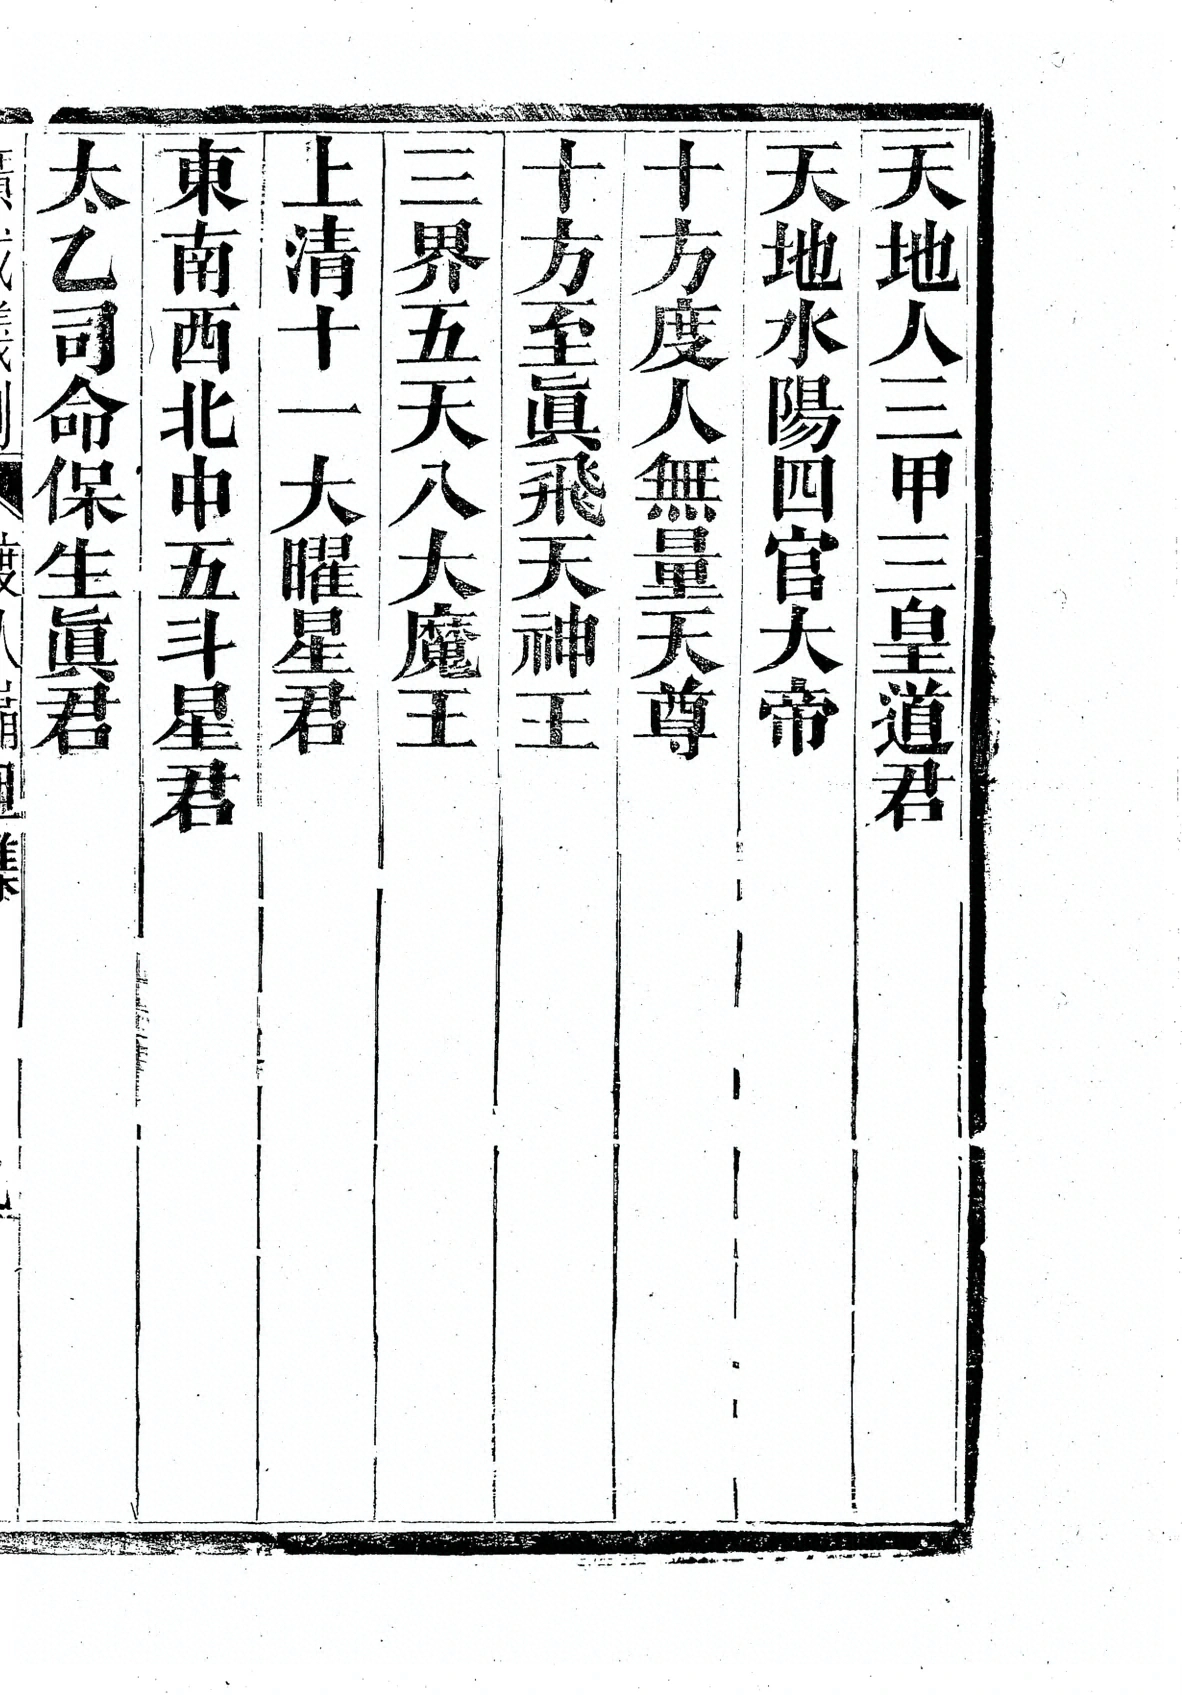 天地人三甲三皇道君
天地水陽四官大帝
十方度人無量天尊
十方至眞飛天神王
三界五天八大魔王
上清十一大曜星君
東南西北中五斗星君
太乙司命保生眞君